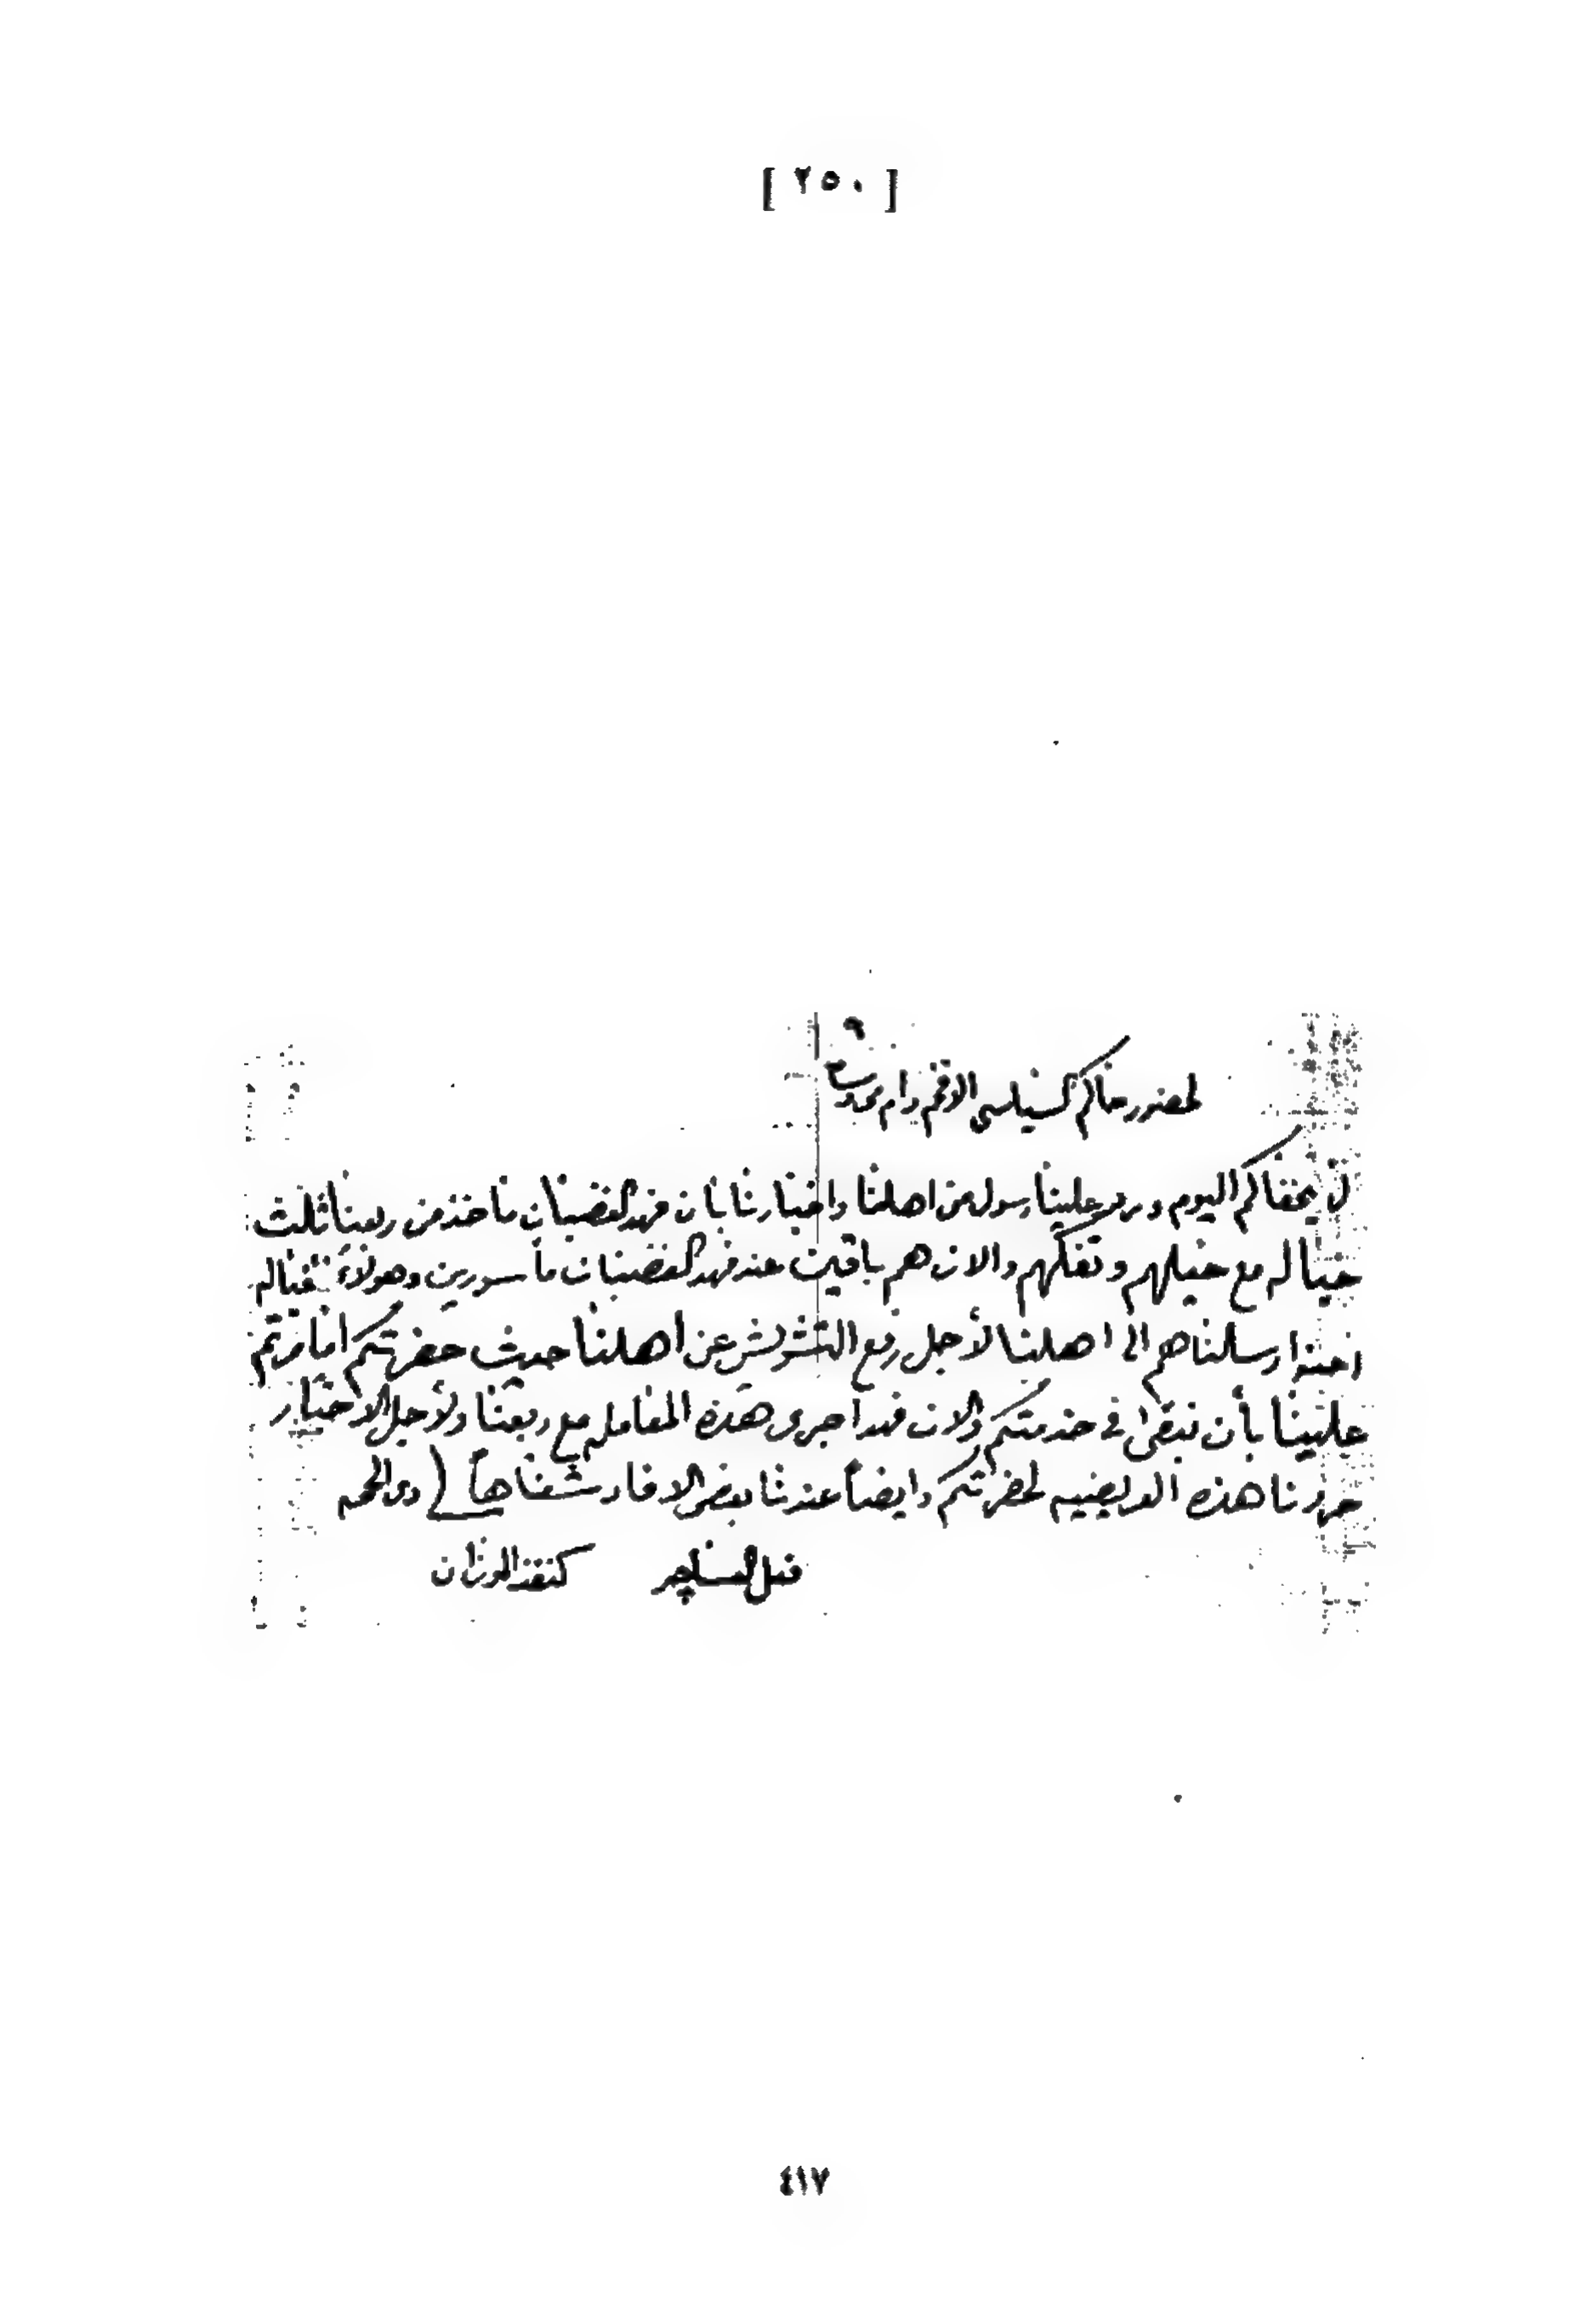 [ ٢٥٠ ]
٩
لحضور حاكم السياسي الافخم دام
يخفاكم اليوم ورد علينا رسول من اهلنا واخبارنا بان فهد الغضبان ماخذ من ربعنا ثلث
خياله مع خيلهم وتفكهم والان هم باقين عند فهد الغضبان مأسورين وهولاء خياله
احنا ارسلناهم الى اهلنا لأجل رفع التشويش عن اهلنا حيث حضرتكم امامرتم
علينا بأن نبقى في خدمتكم والان فهد اجرى هذه المعامله مع ربعنا ولأجل الاخبار
حررنا هذه العريضيه لحضرتكم وايضاً عندنا بعض الافاد شفاهاً
كنقذ الوزان
٤١٧